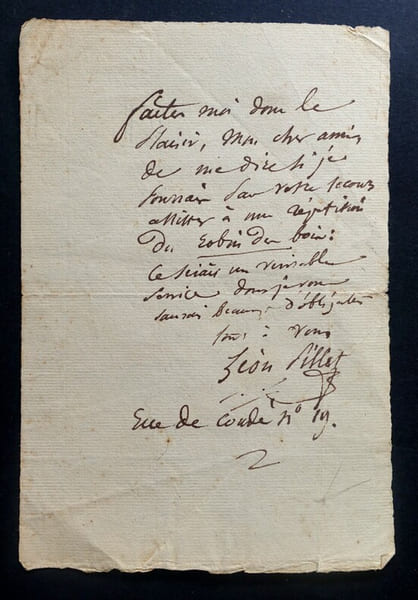 faites moi donc le
plaisir, mon cher ami,
de me dire si je
pourrais par votre secours
assister à une répétition
du Robin des bois :
ce serait un véritable
service dont je vous
saurais beaucoup d'obligation
tout à vous
Léon Pillet
Rue de Condé n° 19.